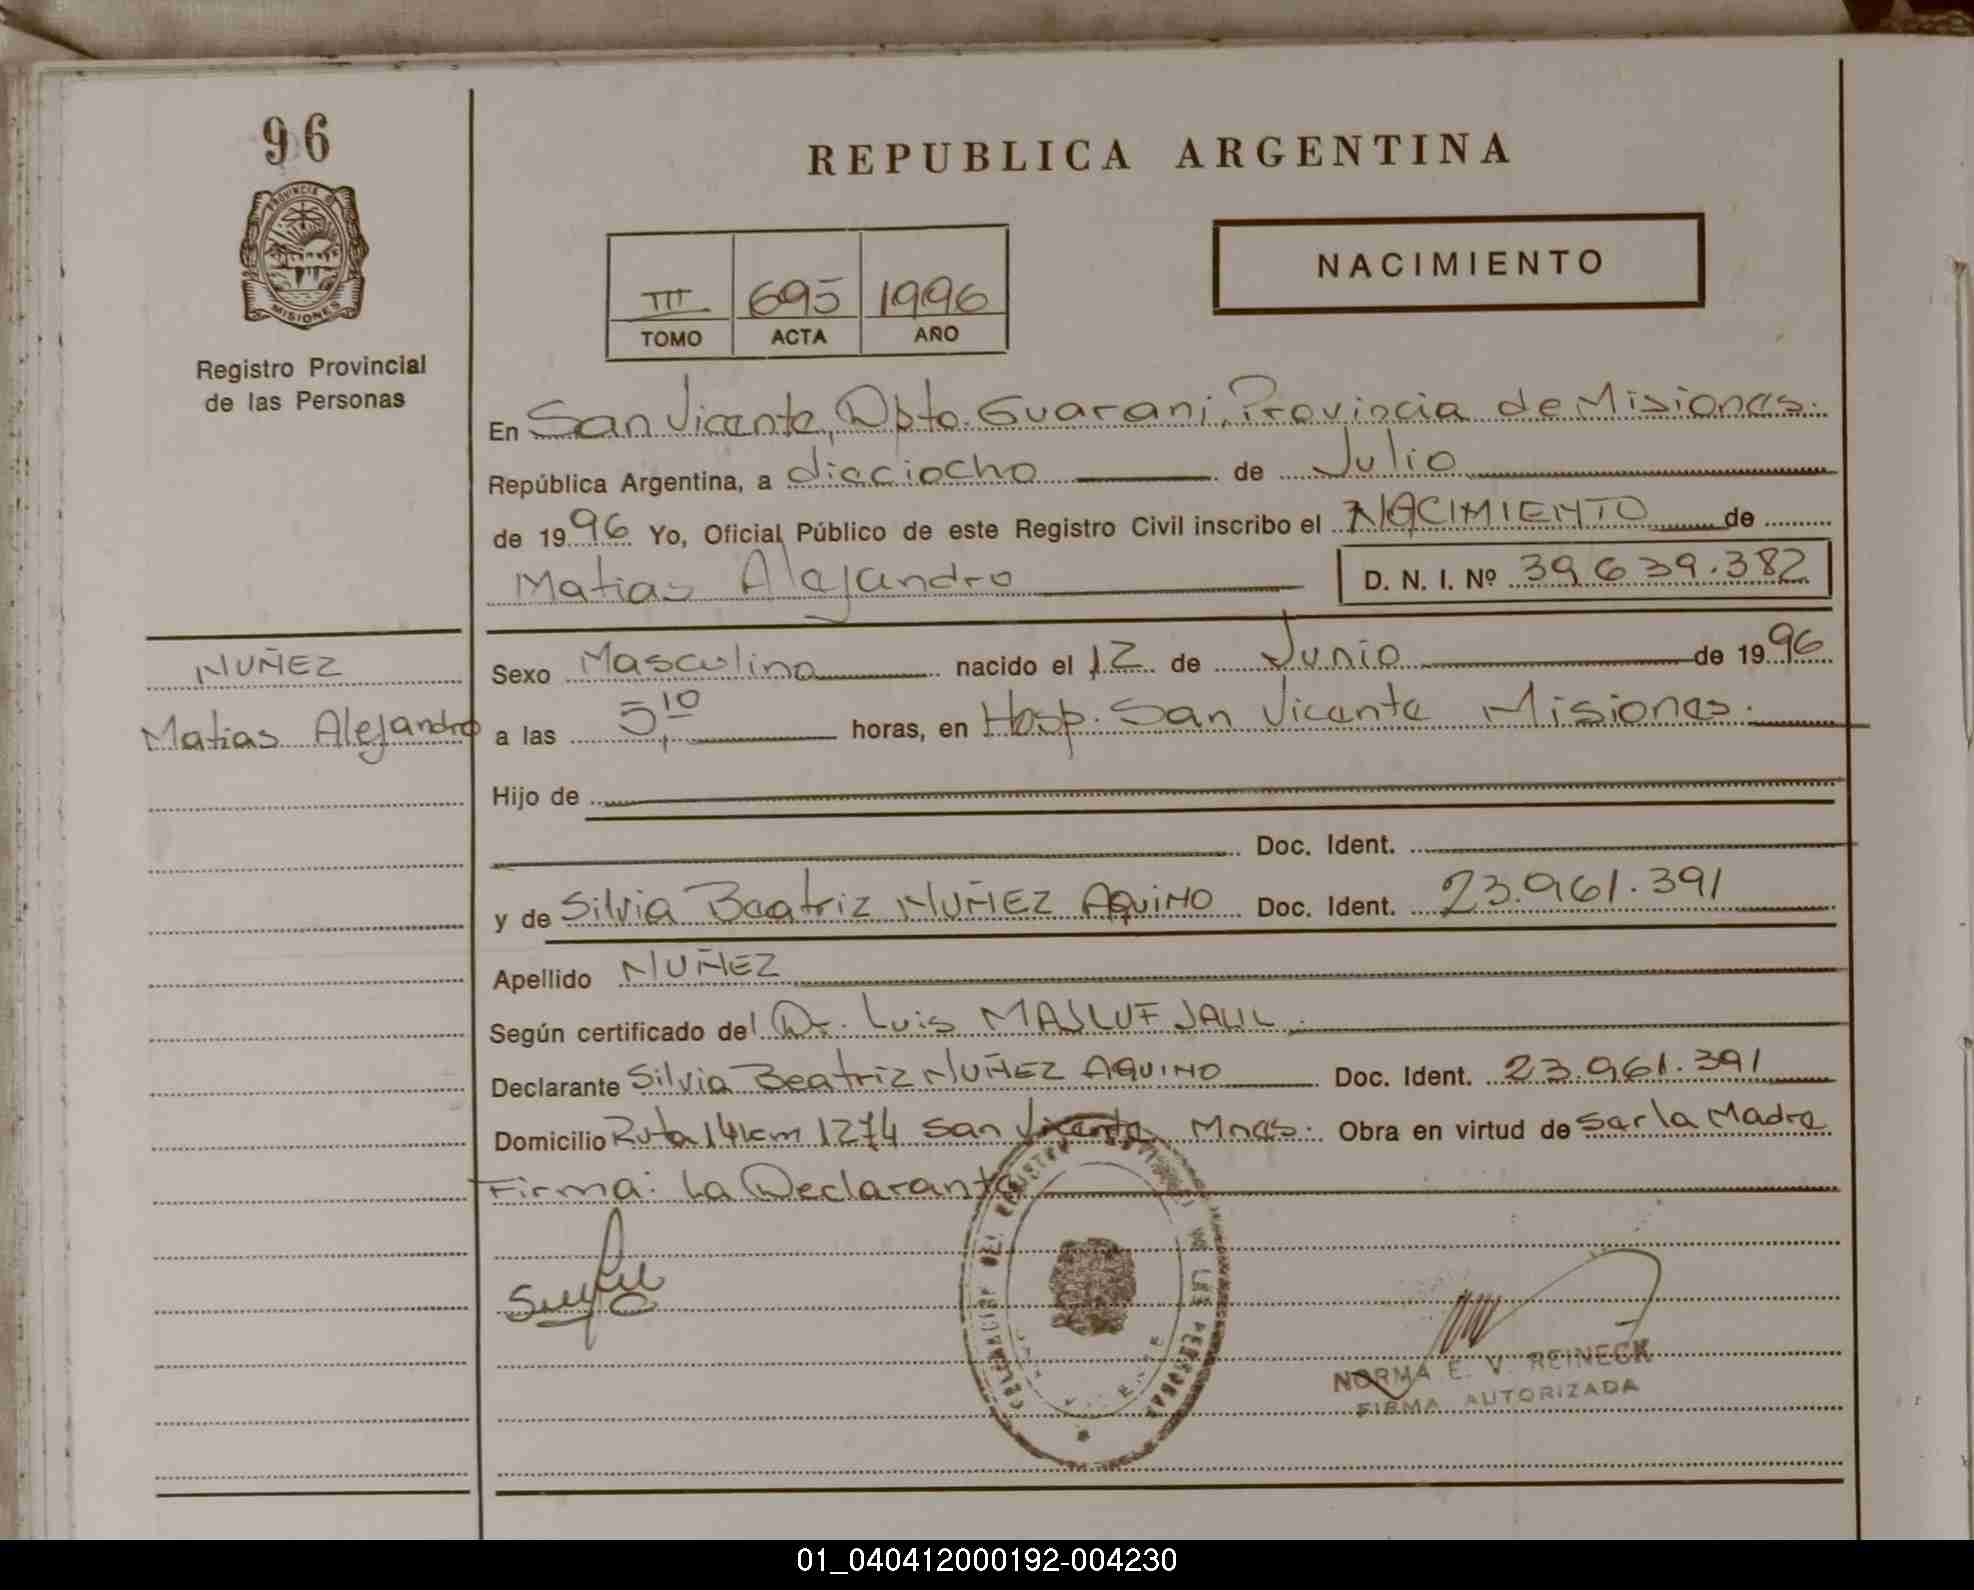 96
PROVINCIA D
MISIONES
Registro Provincial
de las Personas
REPUBLICA ARGENTINA
III 695 1996
TOMO ACTA AÑO
NACIMIENTO
En San Vicente, Dpto. Guarani, Provincia de Misiones.
República Argentina, a dieciocho de Julio
de 1996 Yo, Oficial Público de este Registro Civil inscribo el NACIMIENTO de
Matias Alejandro D. N. I. Nº 39639.382
NUÑEZ
Matias Alejandro
Sexo Masculino nacido el 12 de Junio de 1996
a las 5,10 horas, en Hosp. San Vicente Misiones.
Hijo de
Doc. Ident.
y de Silvia Beatriz NUÑEZ AQUINO Doc. Ident. 23.961.391
Apellido NUÑEZ
Según certificado del Dr. Luis MASLUF JALIL
Declarante Silvia Beatriz NUÑEZ AQUINO Doc. Ident. 23.961.391
Domicilio Ruta 14 km 1274 San Vicente Mnes. Obra en virtud de Ser la Madre
Firma: La Declarante
NORMA E. V. REINECK
FIRMA AUTORIZADA
01_040412000192-004230